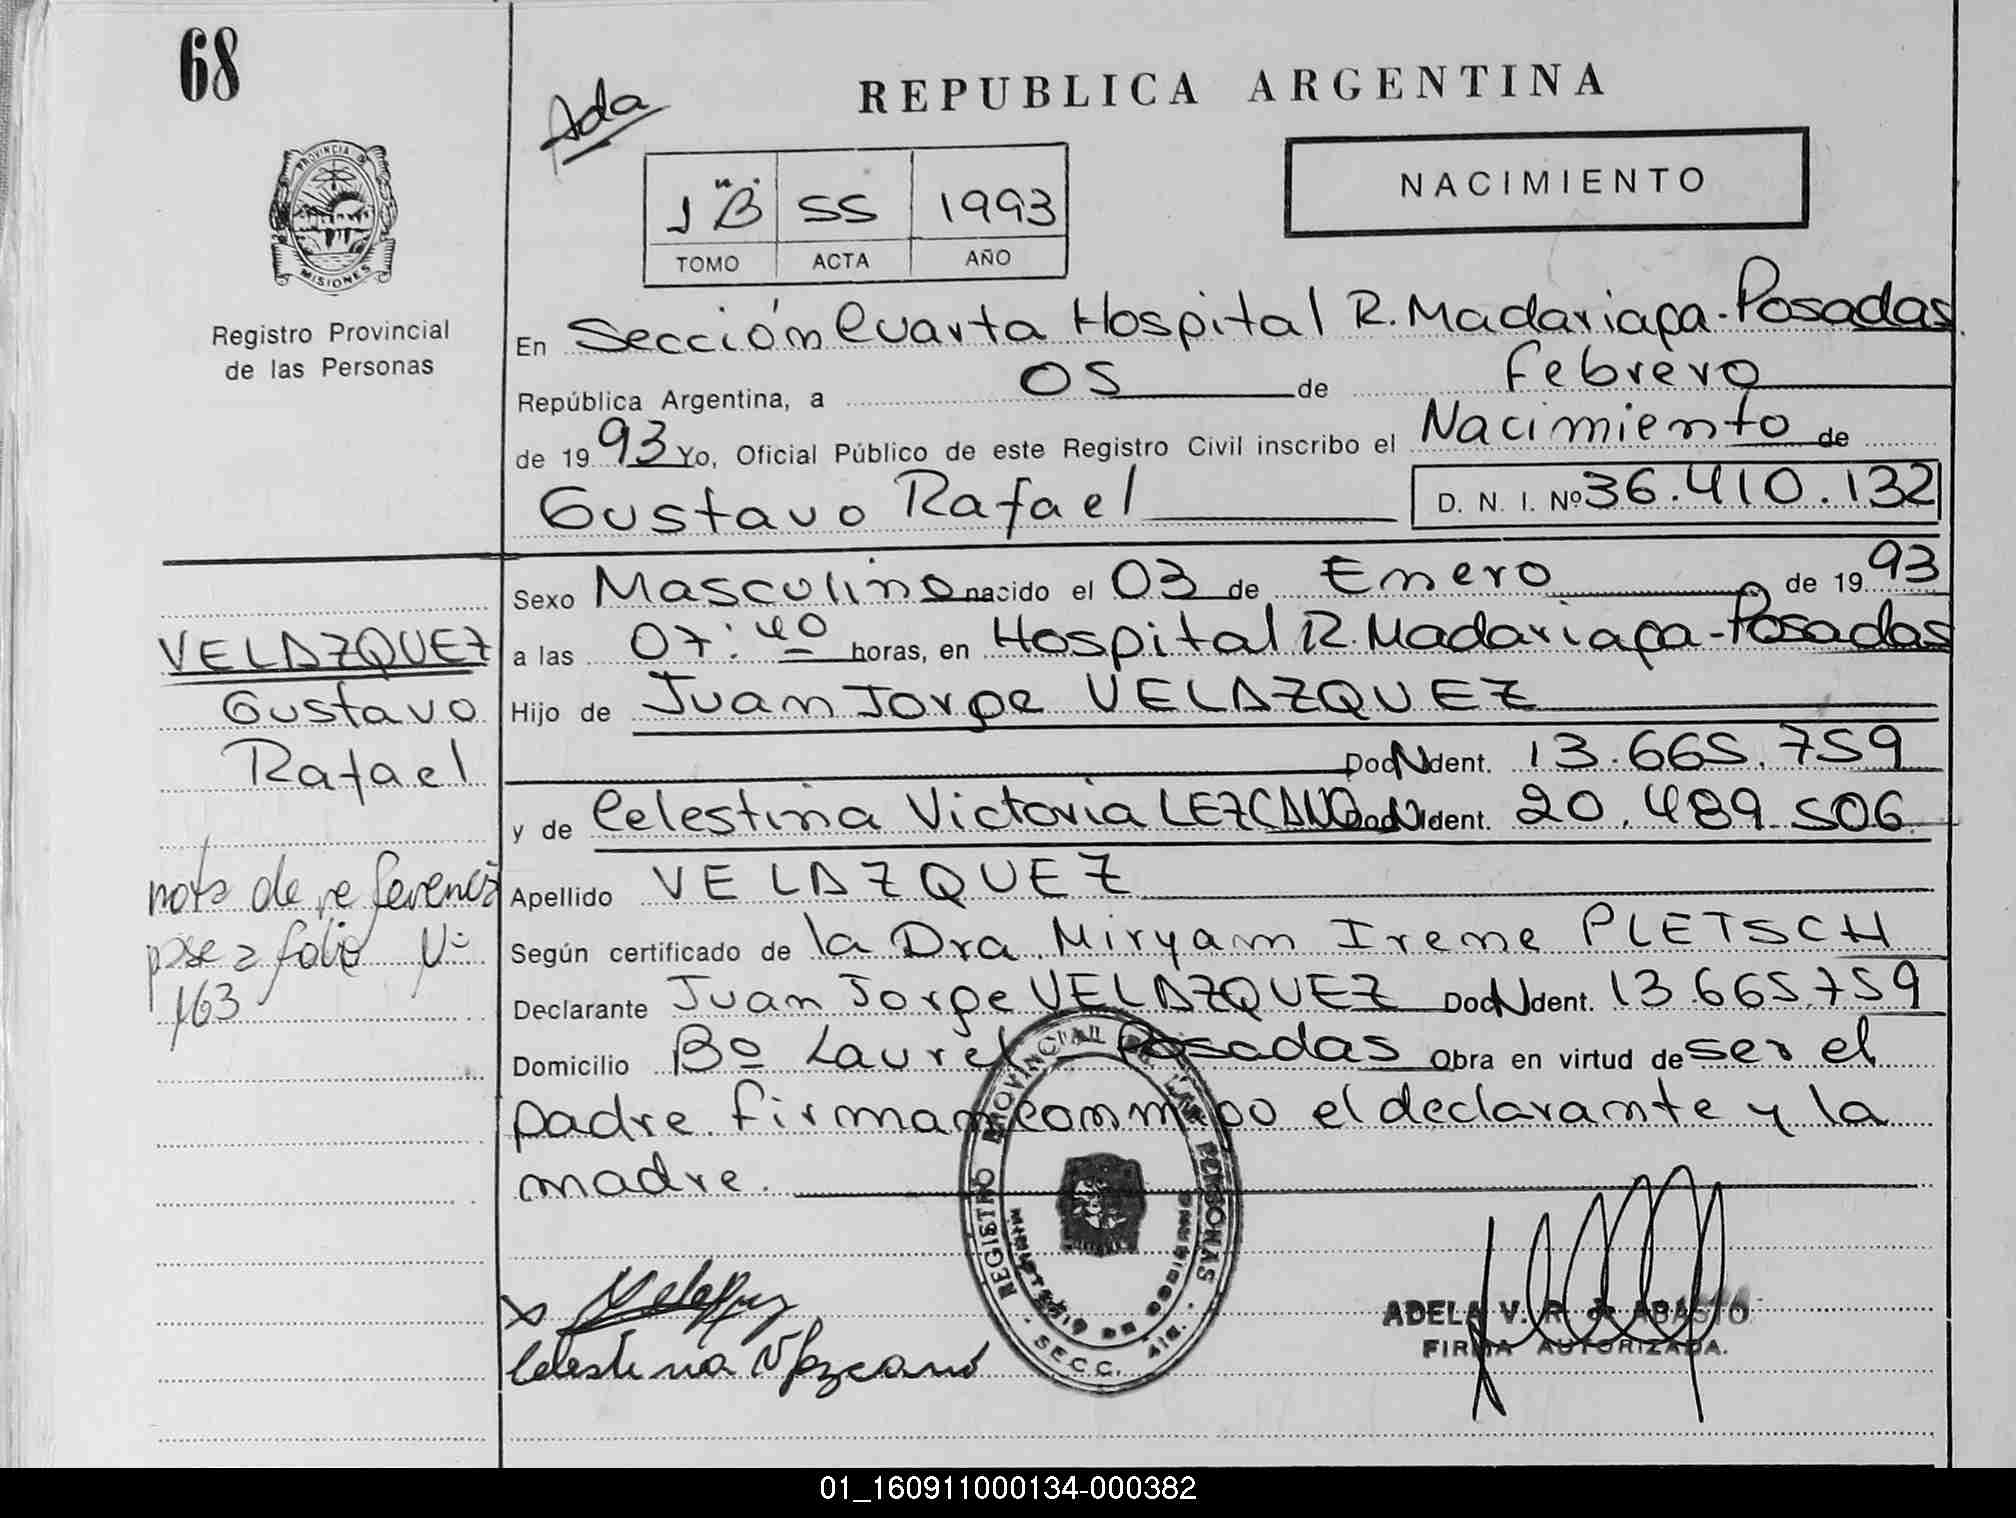 68
Ada
REPUBLICA ARGENTINA
PROVINCIA D
MISIONES
Registro Provincial
de las Personas
1 "B" 55 1993
TOMO ACTA AÑO
NACIMIENTO
En Sección Cuarta Hospital R. Madariaga - Posadas
República Argentina, a 05 de Febrero
de 1993 Yo, Oficial Público de este Registro Civil inscribo el Nacimiento de
Gustavo Rafael D. N. I. Nº 36.410.132
Sexo Masculino nacido el 03 de Enero de 1993
a las 07:40 horas, en Hospital R. Madariaga - Posadas
Hijo de Juan Jorge VELAZQUEZ
Doc N Ident. 13.665.759
y de Celestina Victoria LEZCANO Doc N Ident. 20.489.506
Apellido VELAZQUEZ
Según certificado de la Dra. Miryam Irene PLETSCH
Declarante Juan Jorge VELAZQUEZ Doc N Ident. 13.665.759
Domicilio Bº Laurel Posadas Obra en virtud de ser el
padre. Firman conmigo el declarante y la
madre.
VELAZQUEZ
Gustavo
Rafael
nota de referencia
pase a folio Nº
163
REGISTRO PROVINCIAL DE LAS PERSONAS
MINISTERIO DE GOBIERNO
SECC. 4ta.
Celestina V Lezcano
ADELA V. R. de ABASTO
FIRMA AUTORIZADA.
01_160911000134-000382